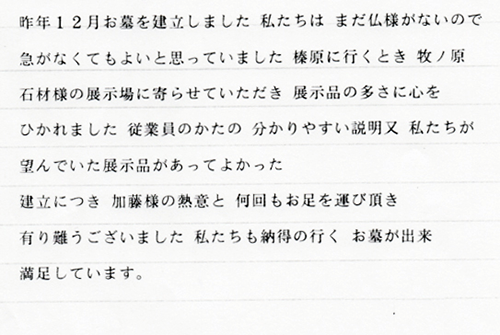 昨年１２月お墓を建立しました 私たちは まだ仏様がないので
急がなくてもよいと思っていました 榛原に行くとき 牧ノ原
石材様の展示場に寄らせていただき 展示品の多さに心を
ひかれました 従業員のかたの 分かりやすい説明又 私たちが
望んでいた展示品があってよかった
建立につき 加藤様の熱意と 何回もお足を運び頂き
有り難うございました 私たちも納得の行く お墓が出来
満足しています。